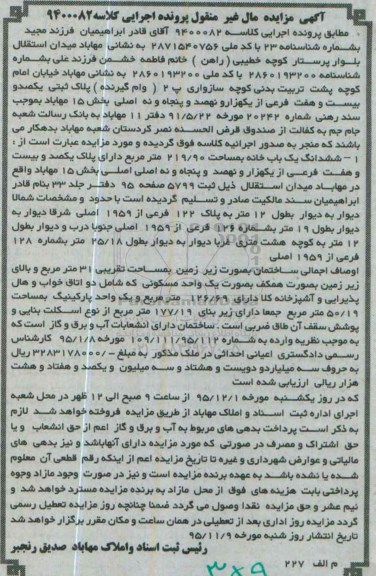 آگهی مزایده مال غیر منقول پرونده اجرایی کلاسه ۹۴۰۰۰۸۲
مطابق پرونده اجرایی کلاسه ۹۴۰۰۰۸۲ آقای قادر ابراهیمیان فرزند مجید
بشماره شناسنامه ۲۳ با کد ملی ۲۸۷۱۵۴۰۷۵۶ به نشانی مهاباد میدان استقلال
بلوار پرستار کوچه خطیبی ( راهن ) خانم فاطمه خشمن فرزند علی بشماره
شناسنامه ۲۸۶۰۱۹۳۲۰۰ با کد ملی ۲۸۶۰۱۹۳۲۰۰ به نشانی مهاباد خیابان امام
کوچه پشت تربیت بدنی کوچه سازواری پ ۲ ( وام گیرنده ) پلاک ثبتی یکصدو
بیست و هفت فرعی از یکهزارو نهصد و پنجاه و نه اصلی بخش ۱۵ مهاباد بموجب
سند رهنی شماره ۲۰۲۴۲ مورخه ۹۱/۵/۲۲ دفتر ۱۱ مهاباد به بانک رسالت شعبه
جام جم به کفالت از صندوق قرض الحسنه نصر کردستان شعبه مهاباد بدهکار می
باشند که منجر به صدور اجرائیه کلاسه فوق گردیده و مورد مزایده عبارت است از :
۱ – ششدانگ یک باب خانه بمساحت ۲۱۹/۹۰ متر مربع دارای پلاک یکصد و بیست
و هفت فرعی از یکهزار و نهصد و پنجاه و نه اصلی اصلی بخش ۱۵ مهاباد واقع
در مهاباد میدان استقلال ذیل ثبت ۵۷۹۹ صفحه ۹۵ دفتر جلد ۳۳ بنام قادر
ابراهیمیان سند مالکیت صادر و تسلیم گردیده است با حدود و مشخصات شمالا
دیوار به دیوار بطول ۱۲ متر به پلاک ۱۲۲ فرعی از ۱۹۵۹ اصلی شرقا دیوار به
دیوار بطول ۱۹ متر بشماره ۱۲۶ فرعی از ۱۹۵۹ اصلی جنوبا درب و دیوار بطول
۱۲ متر به کوچه هشت متری غربا دیوار به دیوار بطول ۲۵/۱۸ متر بشماره ۱۲۸
فرعی از ۱۹۵۹ اصلی
اوصاف اجمالی ساختمان بصورت زیر زمین بمساحت تقریبی ۳۱ متر مربع و بالای
زیر زمین بصورت همکف بصورت یک واحد مسکونی که شامل دو اتاق خواب و هال
پذیرایی و آشپزخانه کلا دارای ۱۲۶/۶۹ متر مربع و یک واحد پارکینگ بمساحت
۵۰/۱۹ متر مربع جمعا دارای زیر بنای ۱۷۷/۱۹ متر مربع از نوع اسکلت بنایی و
پوشش سقف آن طاق ضربی است . ساختمان دارای انشعابات آب و برق و گاز است که
به موجب نظریه وارده به شماره ۱۰۹/۱۱۱/۹۵/۱۱۲ مورخه ۹۵/۱/۸ کارشناس
رسمی دادگستری اعیانی احداثی در ملک مذکور به مبلغ -/۳۲۸۳۱۷۸۰۰۰ ریال
به حروف سه میلیاردو دویست و هشتاد و سه میلیون و یکصد و هفتاد و هشت
هزار ریالی ارزیابی شده است
که در روز یکشنبه مورخه ۹۵/۱۲/۱ از ساعت ۹ صبح الی ۱۲ ظهر در محل شعبه
اجرای اداره ثبت اسناد و املاک مهاباد از طریق مزایده فروخته خواهد شد لازم
به ذکر است پرداخت بدهی های مربوط به آب و برق و گاز اعم از حق انشعاب و یا
حق اشتراک و مصرف در صورتی که مورد مزایده دارای آنهاباشد و نیز بدهی های
مالیاتی و عوارض شهرداری و غیره تا تاریخ مزایده اعم از اینکه رقم قطعی آن معلوم
شده یا نشده باشد به عهده برنده مزایده است و نیز در صورت وجود مازاد وجوه
پرداختی بابت هزینه های فوق از محل مازاد به برنده مزایده مسترد خواهد شد و
نیم عشر و حق مزایده نقدا وصول می گردد ضمنا چنانچه روز مزایده تعطیل رسمی
گردد مزایده روز اداری بعد از تعطیلی در همان ساعت و مکان مقرر برگزار خواهد شد
تاریخ انتشار روز شنبه مورخه ۹۵/۱۱/۹
رئیس ثبت اسناد واملاک مهاباد صدیق رنجبر
م الف ۲۲۷
۳×۹